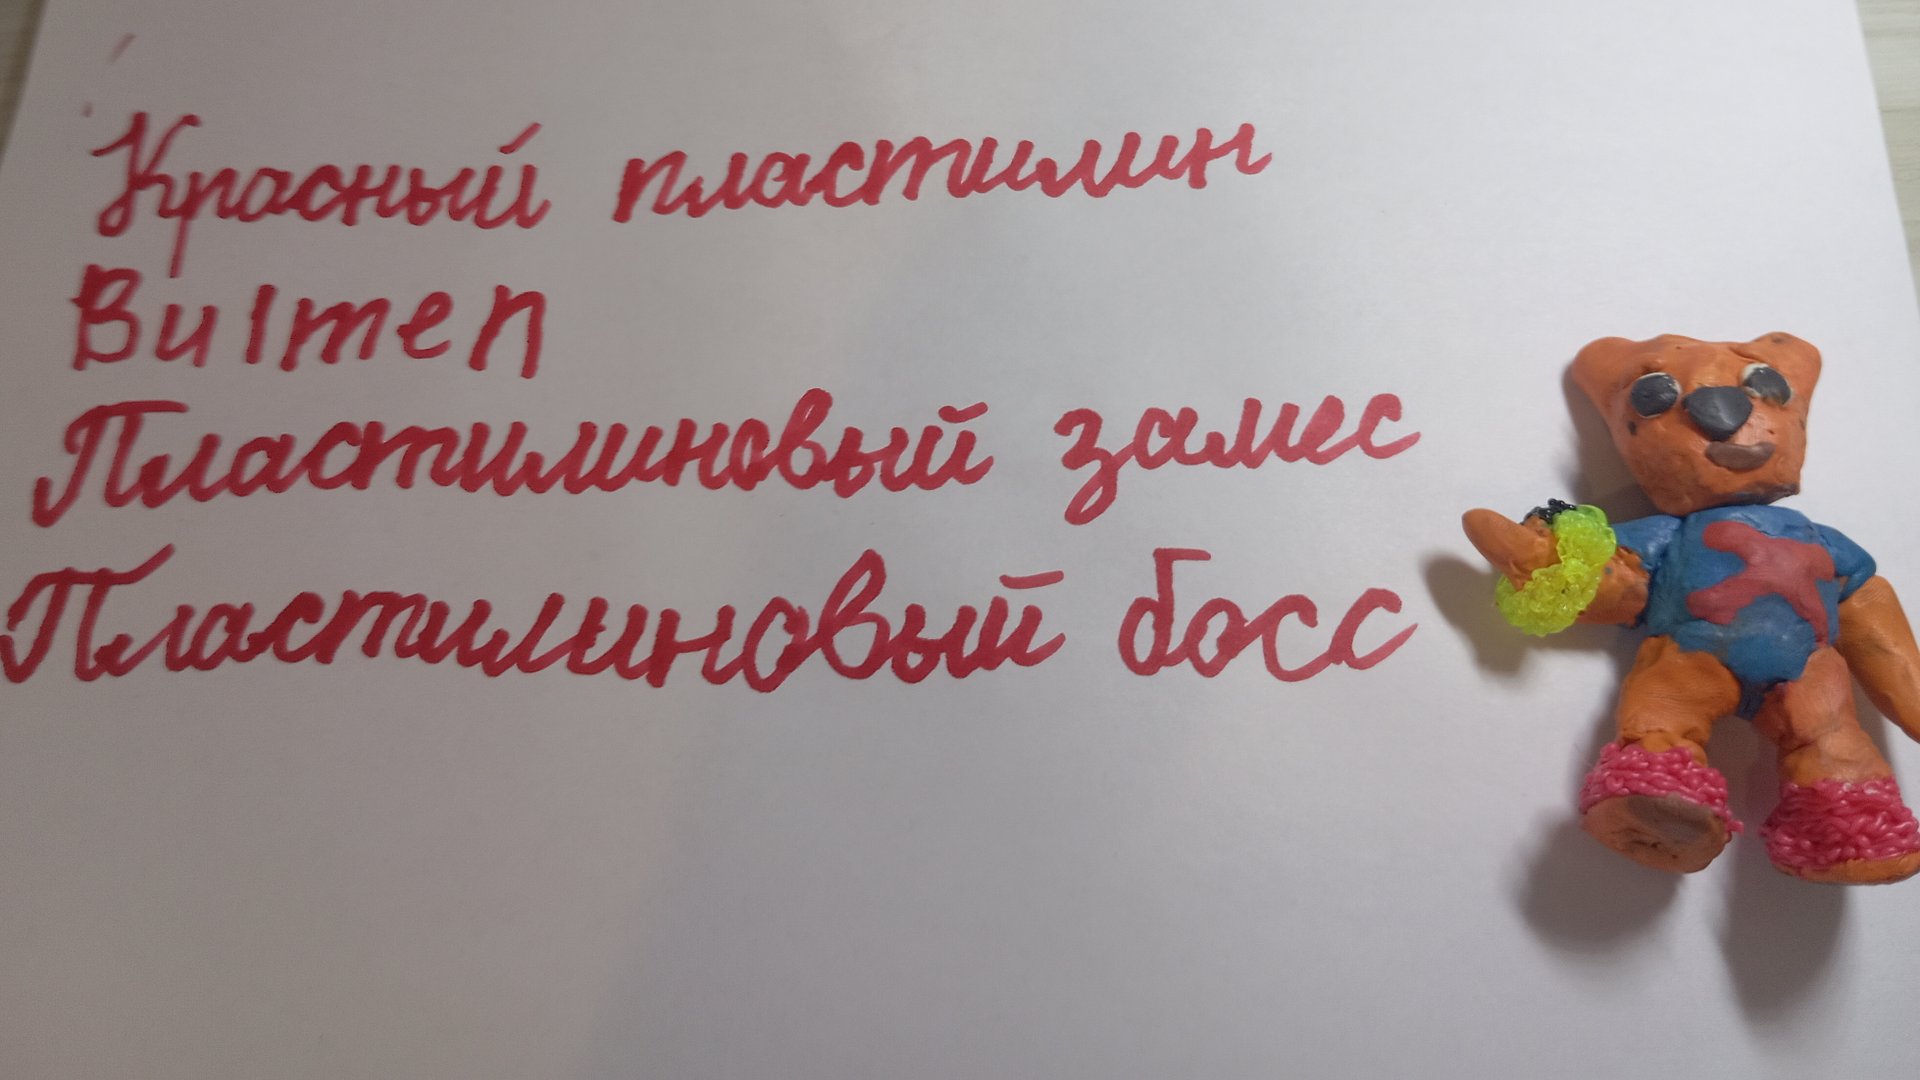 Красный пластилин
Bulmen
Пластилиновый замес
Пластилиновый босс